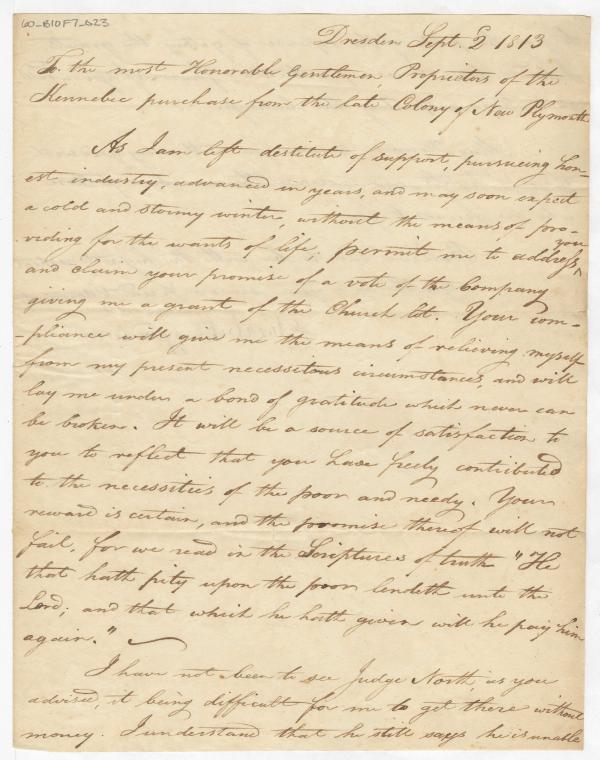 60_B10F7_D23
Dresden Sept. 2 1813
To the most Honorable Gentlemen, Proprietors of the
Kennebec purchase from the late Colony of New Plymouth
As I am left destitute of support, pursueing hon-
est industry, advanced in years, and may soon expect
a cold and stormy winter, without the means of pro-
viding for the wants of life; permit me to address you
and claim your promise of a vote of the Company
giving me a grant of the Church lot. Your com-
-pliance will give me the means of relieving myself
from my present necessitous circumstances, and will
lay me under a bond of gratitude which never can
be broken. It will be a source of satisfaction to
you to reflect that you have freely contributed
to the necessities of the poor and needy. Your
reward is certain, and the promise thereof will not
fail, for we read in the Scriptures of truth "He
that hath pity upon the poor lendeth unto the
Lord; and that which he hath given will he pay him
again."
I have not been to see Judge North, as you
advised, it being difficult for me to get there without
money. I understand that he still says he is unable